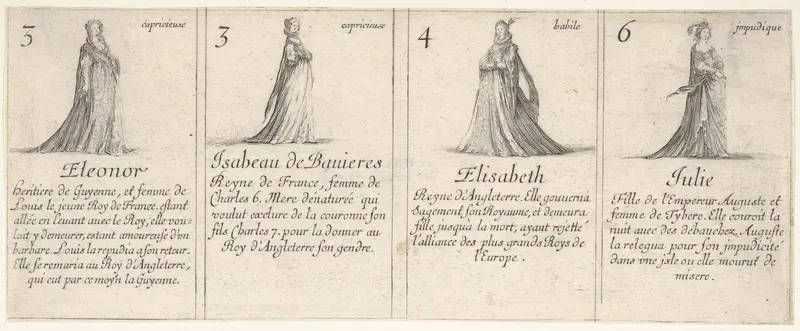 3 capricieuse
Eleonor
heritiere de Guyenne, et femme de
Louis le jeune Roy de France. estant
allée en leuant auec le Roy, elle vou-
loit y demeurer, estant amoureuse d'un
barbare. Louis la repudia a son retour.
Elle se remaria au Roy d'Angleterre,
qui eut par ce moyn la Guyenne.
3 capricieuse
Isabeau de Bauieres
Reyne de France, femme de
Charles 6. Mere dénaturée qui
voulut exclure de la couronne son
fils Charles 7. pour la donner au
Roy d'Angleterre son gendre.
4 habile
Elisabeth
Reyne d'Angleterre. Elle gouuerna
sagement son Royaume, et demeura
fille jusqu'à la mort, ayant rejetté
l'alliance des plus grands Roys de
l'Europe.
6 jmpudique
Julie
Fille de l'Empereur Auguste et
femme de Tybere. Elle couroit la
nuit auec des débauchez. Auguste
la relegua pour son jmpudicité
dans vne jsle ou elle mourut de
misere.